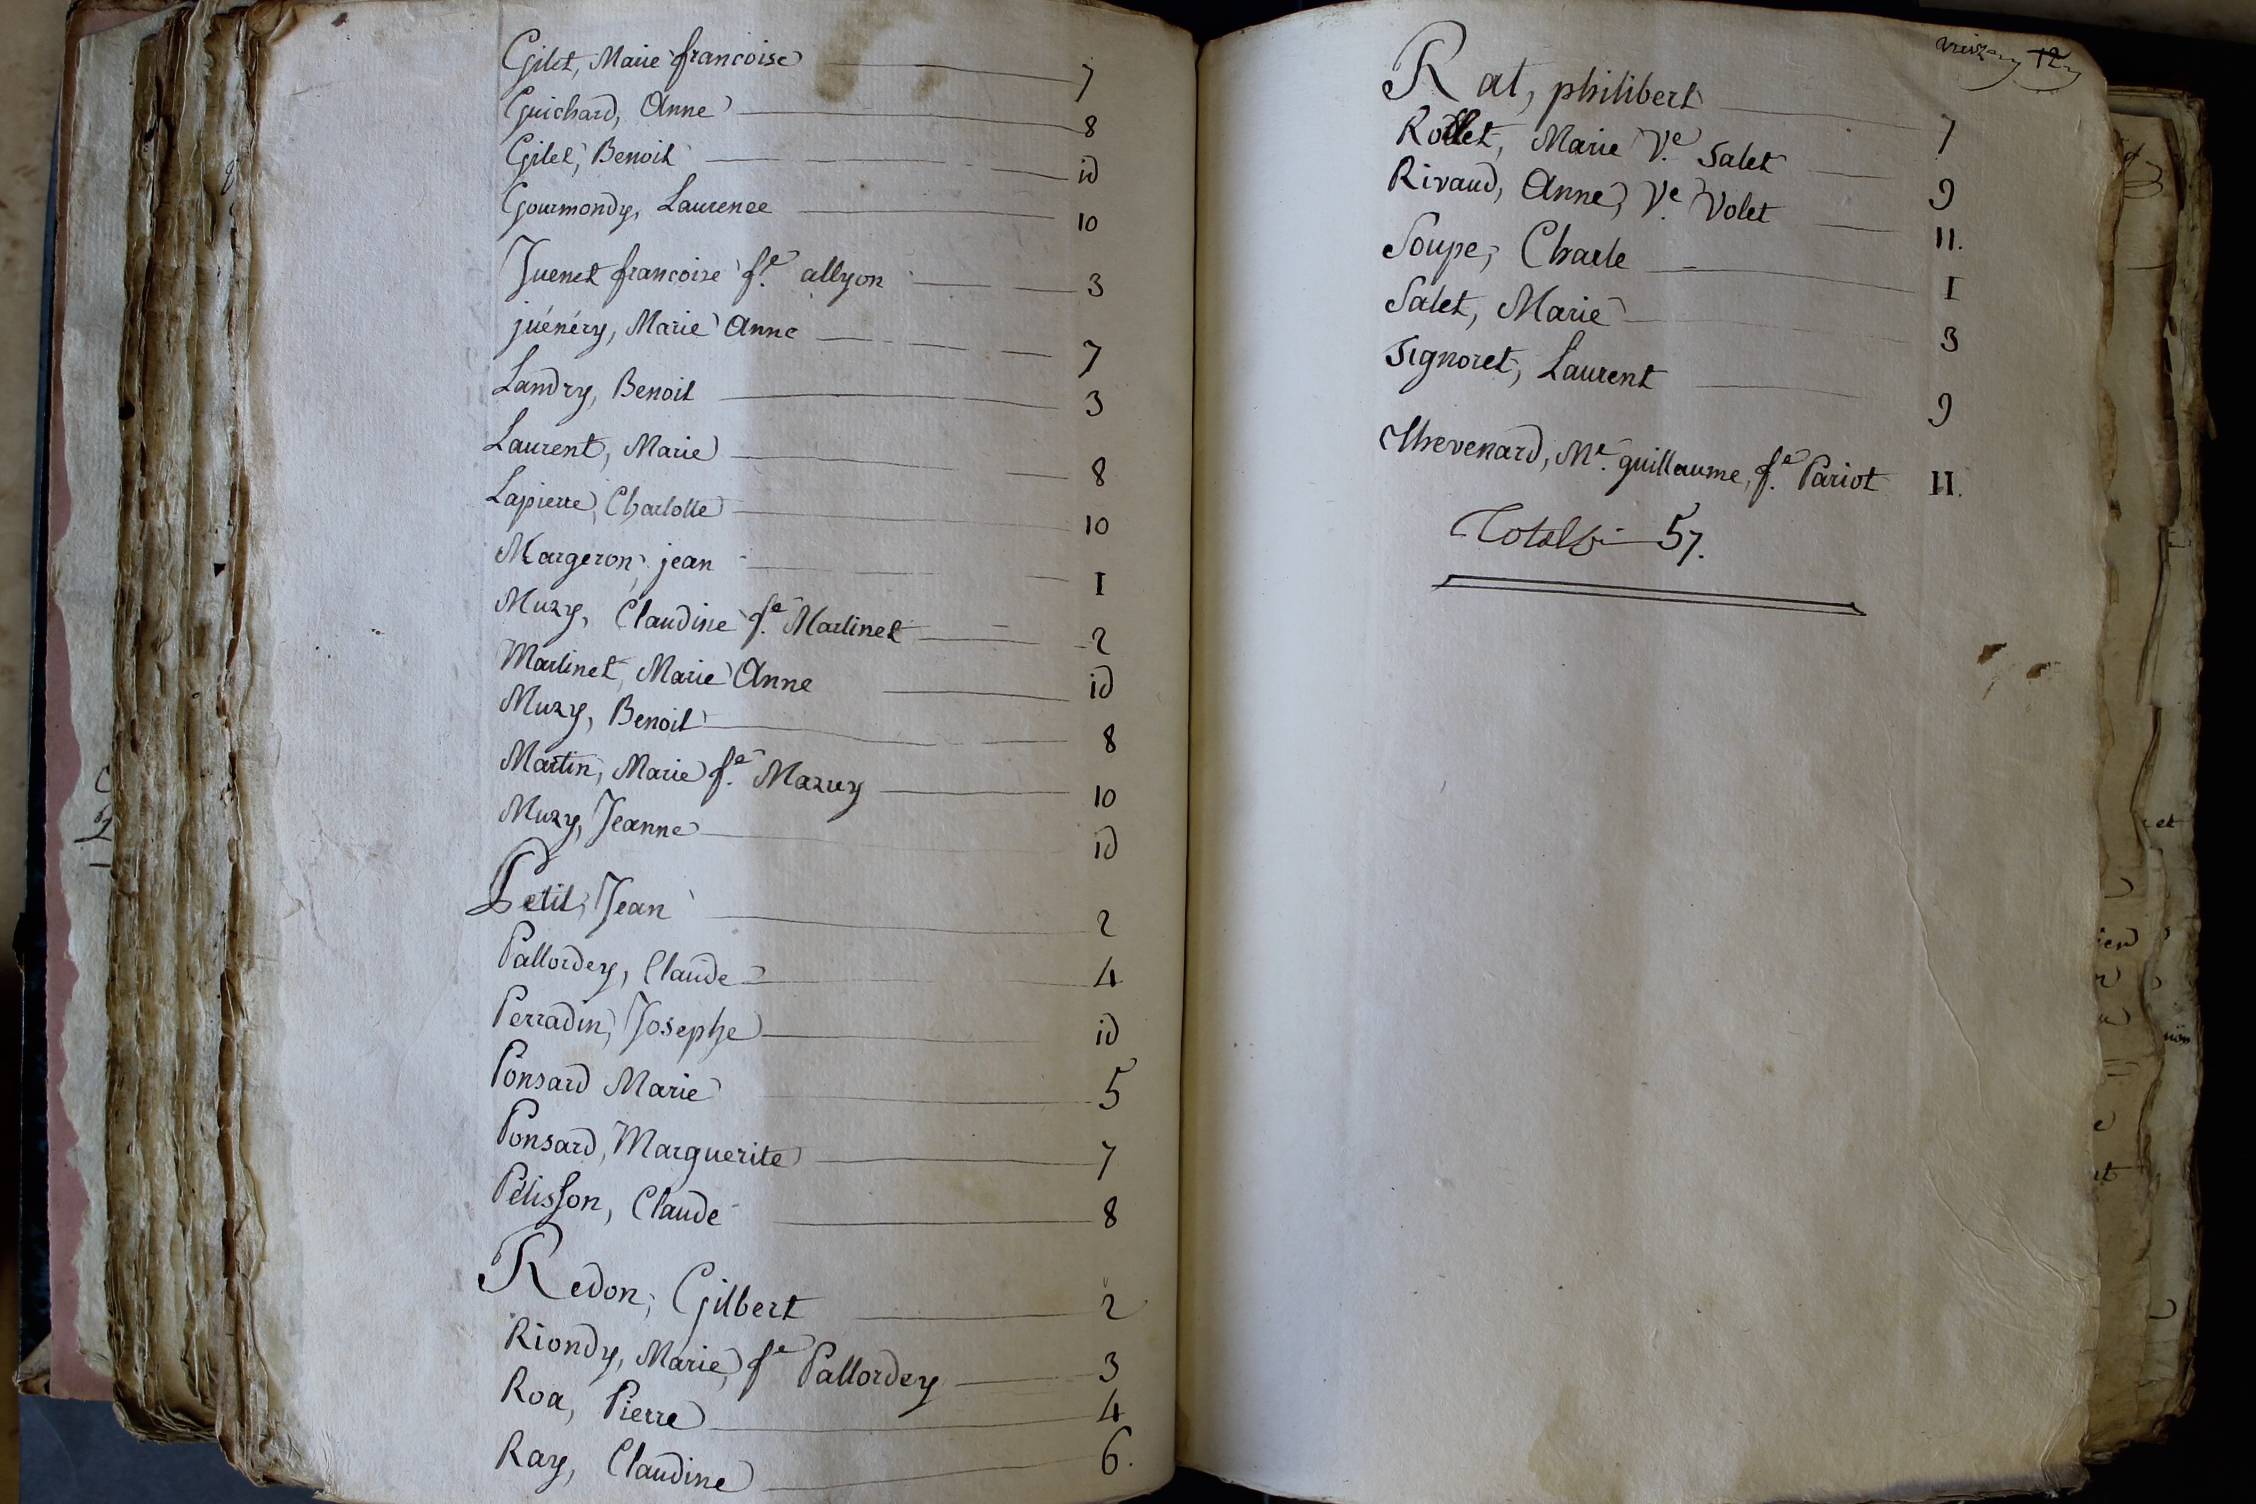 Gilet, Marie francoise 7
Guichard, Anne 8
Gilet, Benoit id
Gourmondy, Laurence 10
Juenet francoise fe. allyon 3
juénéry, Marie Anne 7
Landry, Benoit 3
Laurent, Marie 8
Lapierre, Charlotte 10
Margeron, jean 1
Muzy, Claudine fe. Martinet 2
Martinet, Marie Anne id
Muzy, Benoit 8
Martin, Marie fe. Mazuy 10
Muzy, Jeanne id
Petit, Jean 2
Pallordey, Claude 4
Perradin, Josephe id
Ponsard Marie 5
Ponsard, Marguerite 7
Pélisson, Claude 8
Redon, Gilbert 2
Riondy, Marie, fe Pallordey 3
Roa, Pierre 4
Ray, Claudine 6.
12
Rat, philibert 7
Rollet, Marie Ve. Salet 9
Rivaud, Anne, Ve. Volet 11.
Soupe, Charle 1
Salet, Marie 3
Signoret, Laurent 9
Thevenard, Me. guillaume, fe. Pariot 11.
57.